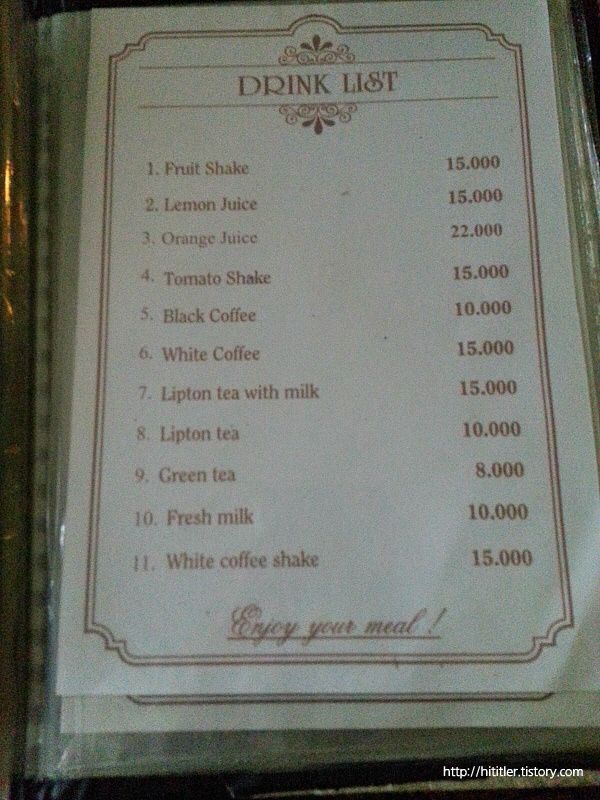 DRINK LIST
1. Fruit Shake 15.000
2. Lemon Juice 15.000
3. Orange Juice 22.000
4. Tomato Shake 15.000
5. Black Coffee 10.000
6. White Coffee 15.000
7. Lipton tea with milk 15.000
8. Lipton tea 10.000
9. Green tea 8.000
10. Fresh milk 10.000
11. White coffee shake 15.000
Enjoy your meal !
http://hititler.tistory.com